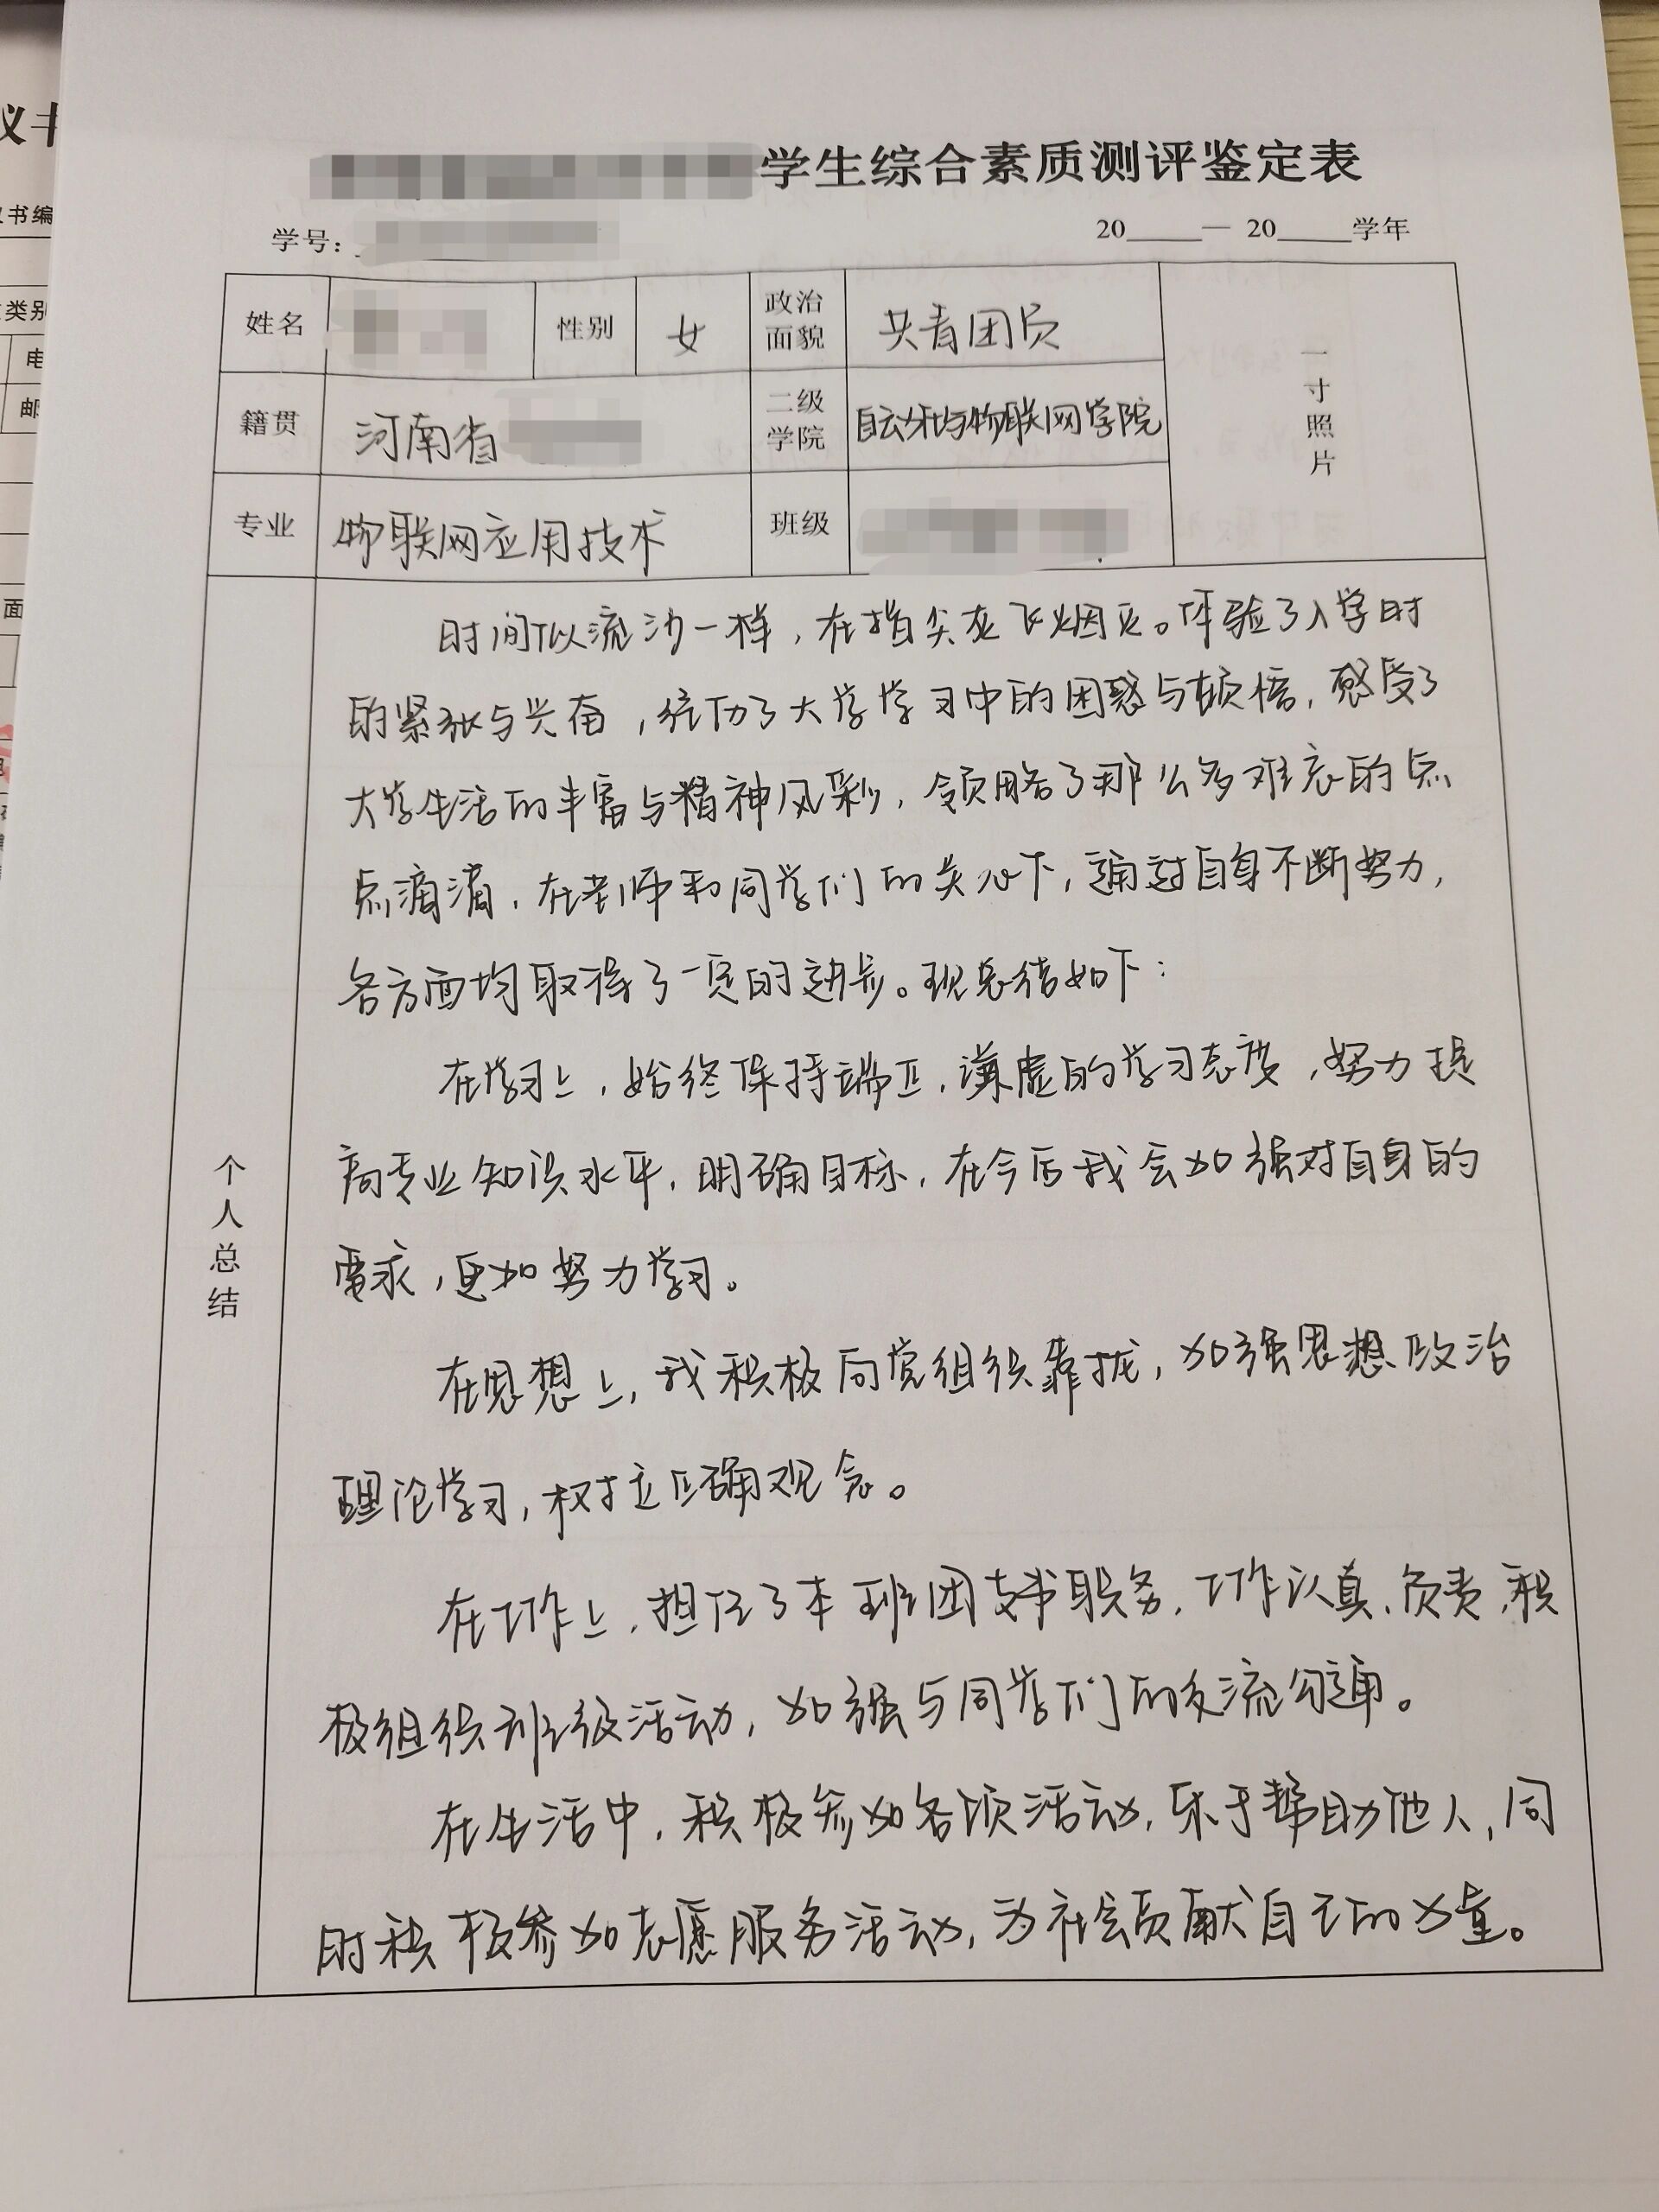 议书
议书编
类别
电
邮
面
学生综合素质测评鉴定表
学号:
20____— 20____学年
姓名
性别
女
政治面貌
共青团员
一寸照片
籍贯
河南省
二级学院
自动化与物联网学院
专业
物联网应用技术
班级
个人总结
时间似流沙一样,在指尖灰飞烟灭。体验了入学时
的紧张与兴奋,经历了大学学习中的困惑与顿悟,感受了
大学生活的丰富与精神风彩,领略了那么多难忘的点
点滴滴,在老师和同学们的关心下,通过自身不断努力,
各方面均取得了一定的进步。现总结如下:
在学习上,始终保持端正,谦虚的学习态度,努力提
高专业知识水平,明确目标,在今后我会加强对自身的
需求,更加努力学习。
在思想上,我积极向党组织靠拢,加强思想政治
理论学习,树立正确观念。
在工作上,担任了本班团支书职务,工作认真、负责,积
极组织班级活动,加强与同学们的交流沟通。
在生活中,积极参加各项活动,乐于帮助他人,同
时积极参加志愿服务活动,为社会贡献自己的力量。